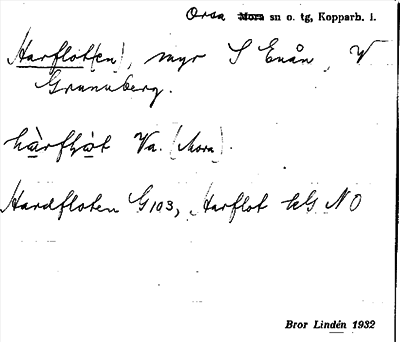 Orsa Mora sn o. tg, Kopparb. l.
Harflot(en), myr S Enån, V
Grunuberg.
hàrfḷọt Va. (Mora).
Hardfloten G 103, Harflot kG NO
Bror Lindén 1932